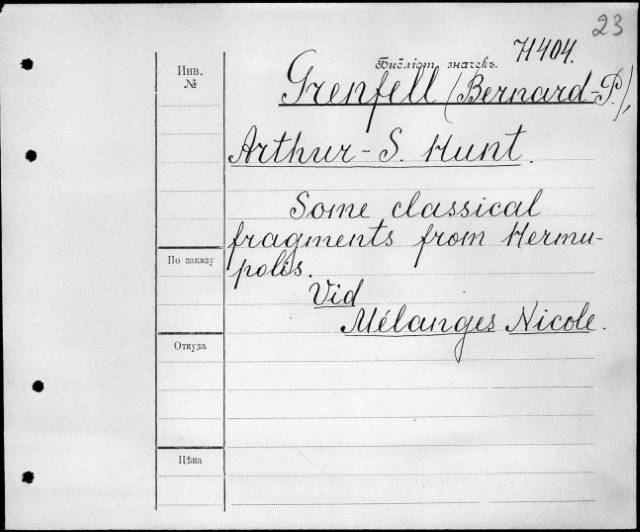 23
Библіот. значекъ. H404.
Инв.
№
Grenfell (Bernard-P.),
Arthur-S. Hunt.
Some classical
fragments from Hermu-
polis.
По заказу
Vid
Mélanges Nicole.
Откуда
Цѣна